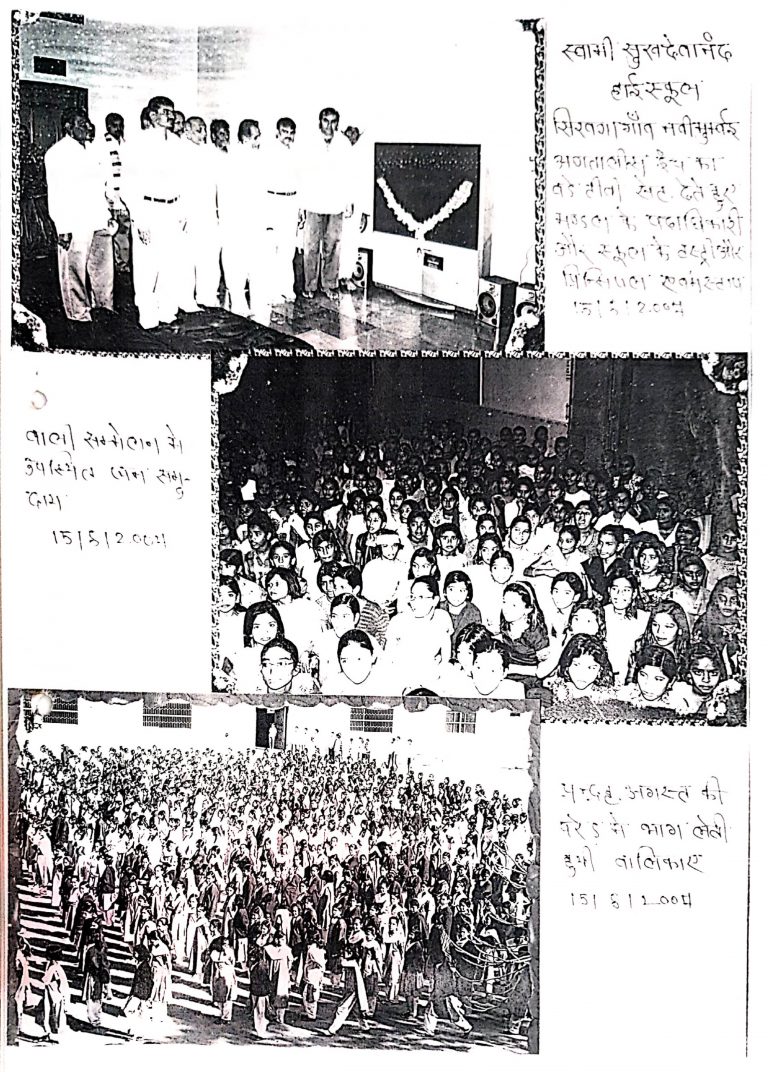 स्वामी सुखदेवानंद
हाई स्कूल
सिरवनागाँव नवीमुम्बई
अडतालीस इंच का
वडे टीवी सह. देते हुए
मण्डल के पदाधिकारी
और स्कूल के ट्रस्टी और
प्रिन्सिपल एवम स्टाप
15/8/2004
वाली सम्मेलन मे
उपस्थित जन समु-
दाय
15/8/2004
पन्द्रह अगस्त की
परेड मे भाग लेती
हुयी वालिकाए
15/8/2004